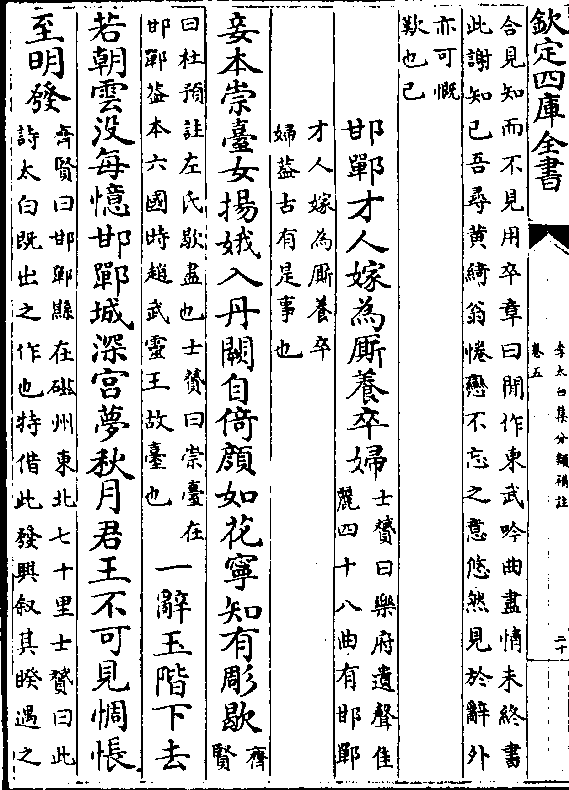 欽定四庫全書
李太白集分類補註
卷五
二十
合見知而不見用卒章曰閒作東武吟曲盡情未終書
此謝知己吾尋黄綺翁惓戀不忘之意悠然見於辭外
亦可慨
歎也已
邯鄲才人嫁為厮養卒婦
士贇曰樂府遺聲佳
麗四十八曲有邯鄲
才人嫁為厮養卒
婦葢古有是事也
妾本崇臺女揚娥入丹闕自倚顔如花寧知有彫歇
齊
賢
曰杜預註左氏歇盡也士贇曰崇臺在
邯鄲葢本六國時趙武靈王故臺也
一辭玉階下去
若朝雲没每憶邯鄲城深宮夢秋月君王不可見惆悵
至明發
齊賢曰邯鄲縣在磁州東北七十里士贇曰此
詩太白既出之作也特借此發興叙其睽遇之